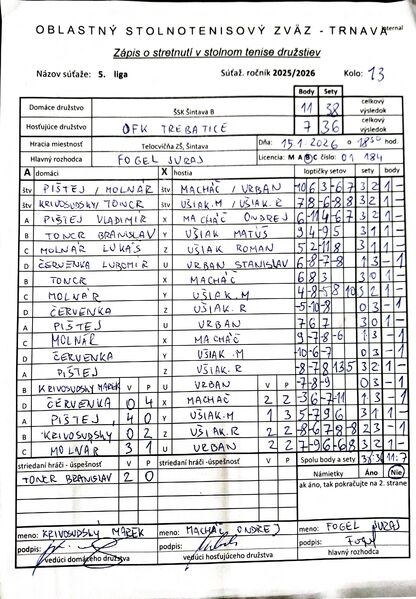 OBLASTNÝ STOLNOTENISOVÝ ZVÄZ - TRNAVA
Zápis o stretnutí v stolnom tenise družstiev
Názov súťaže: 5. liga Súťaž. ročník 2025/2026 Kolo: 13
Body Sety
Domáce družstvo ŠSK Šintava B 11 38 celkový výsledok
Hosťujúce družstvo OFK TREBATICE 7 36 celkový výsledok
Hracia miestnosť Telocvičňa ZŠ, Šintava Dňa: 15.1.2026 o 18:30 hod.
Hlavný rozhodca FOGEL JURAJ Licencia: M A B C číslo: 01 184
A domáci X hostia loptičky setov sety body
štv PIŠTEJ / MOLNÁR štv MACHÁČ / URBAN
štv KRIVOSUDSKÝ/TONCR štv UŠIAK.M / UŠIAK.R
A PIŠTEJ VLADIMÍR X MACHÁČ ONDREJ
B TONCR BRANISLAV Y UŠIAK MATÚŠ 9 4 -9 5 3 1 1 -
C MOLNÁR LUKÁŠ Z UŠIAK ROMAN
D ČERVENKA ĽUBOMÍR U URBAN STANISLAV
B TONCR X MACHÁČ 6 8 3 3 0 1 -
C MOLNÁR Y UŠIAK.M
D ČERVENKA Z UŠIAK.R
A PIŠTEJ U URBAN 7 6 7 3 0 1 -
C MOLNÁR X MACHÁČ
D ČERVENKA Y UŠIAK.M
A PIŠTEJ Z UŠIAK.R
B KRIVOSUDSKÝ MAREK V P U URBAN V P -7 -8 -9 0 3 - 1
D ČERVENKA 0 4 X MACHÁČ 2 2
A PIŠTEJ 4 0 Y UŠIAK.M 1 3
B KRIVOSUDSKÝ 0 2 Z UŠIAK.R 2 2
C MOLNÁR 3 1 U URBAN 2 2
striedaní hráči - úspešnosť V P striedaní hráči -úspešnosť V P Spolu body a sety 11:7
TONCR BRANISLAV 2 0 Námietky Áno Nie
ak áno, tak pokračujte na 2. strane
meno: KRIVOSUDSKÝ MAREK meno: MACHÁČ ONDREJ meno: FOGEL JURAJ
podpis: podpis: podpis: Fogel
vedúci domáceho družstva vedúci hosťujúceho družstva hlavný rozhodca